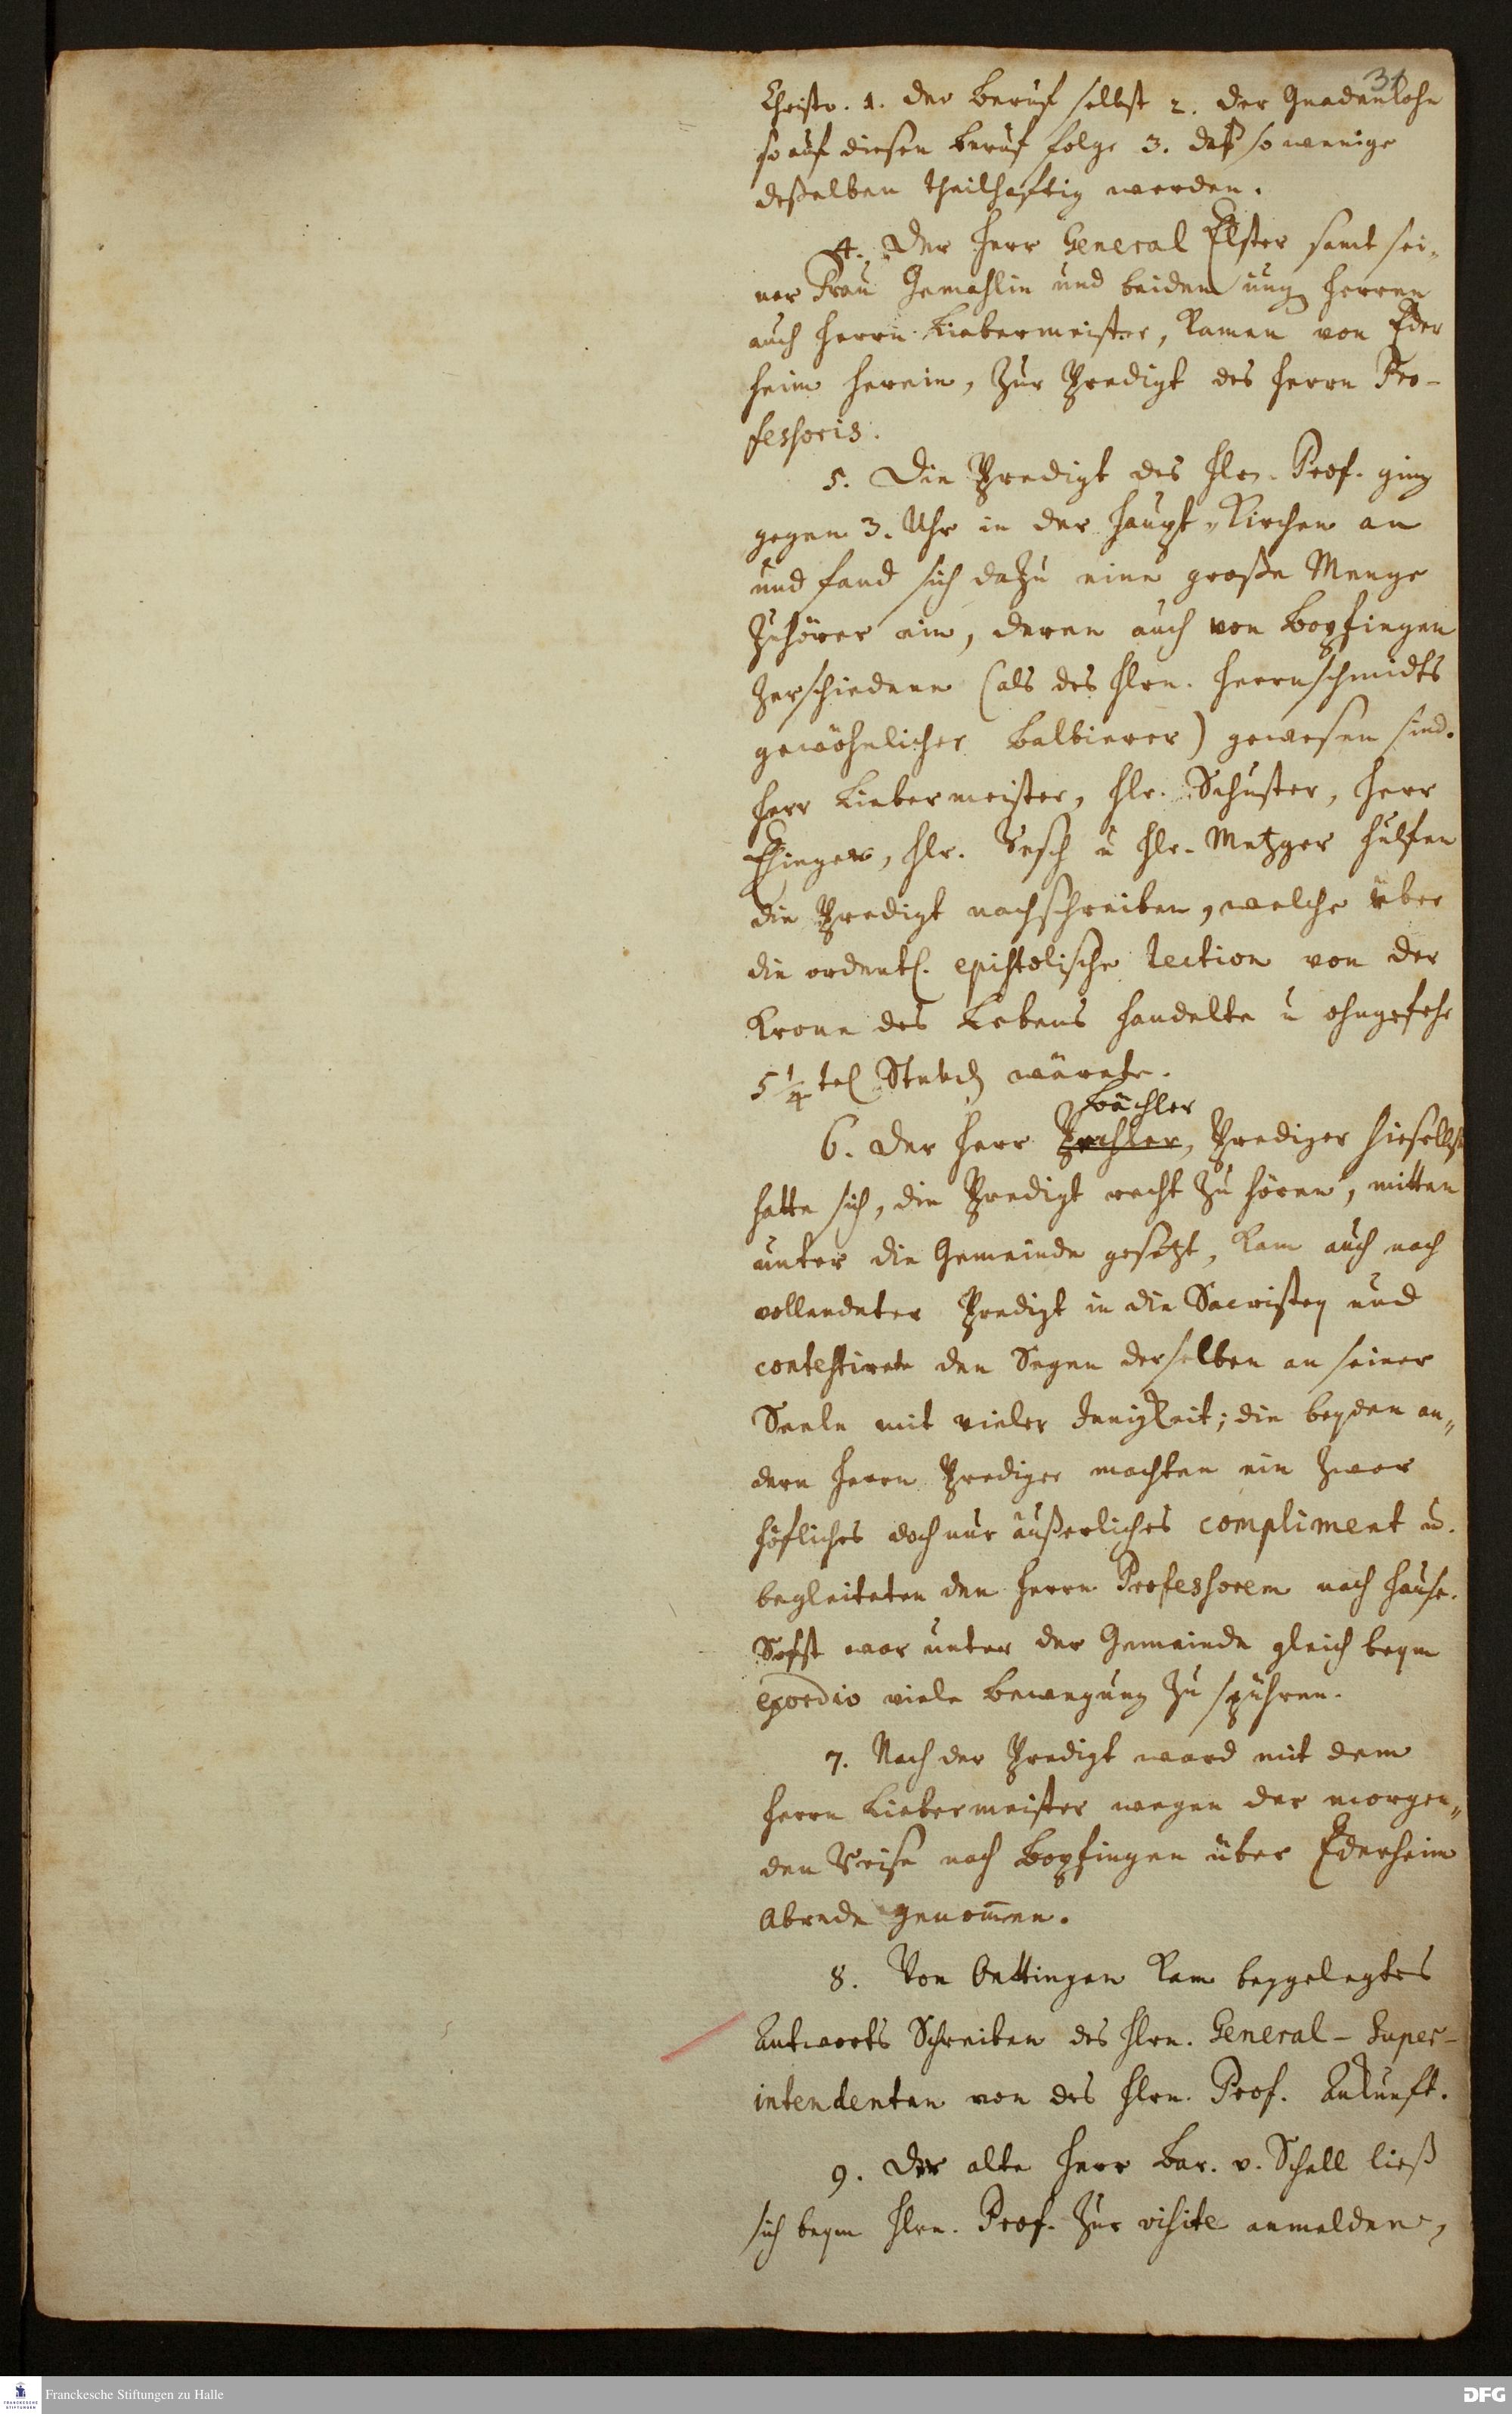 31
Christo. 1. der Beruf selbst 2. der Gnadenlohn
so auf diesen Beruf folge 3. daß so wenige
deßelben theilhafftig werden.
4. Der Herr General Elster samt sei-
ner Frau Gemahlin und beiden jung Herren
auch Herrn Liebermeister, kamen von Eder
heim herein, zur Predigt des Herrn Pro-
fessoris.
5. Die Predigt des Hln. Prof. ging
gegen 3. Uhr in der Haupt-Kirchen an
und fand sich dazu eine große Menge
Zuhörer ein, deren auch von Bopfingen
zerschiedene (als des Hlrn. Herrnschmidts
gewöhnlicher Balbierer) gewesen sind.
Herr Liebermeister, Hlr. Schuster, Herr
Ehinger, Hlr. Besch u Hlr. Metzger hulfen
die Predigt nachschreiben, welche über
die ordentl. epistolische lection von der
Krone des Lebens handelte u ohngefehr
5 1/4 tel Stund wärete.
Bächler
6. Der Herr Prediger hieselbst
hatte sich, die Predigt recht zu hören, mitten
unter die Gemeinde gesetzt, kam auch nach
vollendeter Predigt in die Sacristey und
contestirete den Segen derselben an seiner
Seele mit vieler Innigkeit; die beyden an-
dern Herrn Prediger machten ein zwar
höfliches doch nur äußerliches compliment u.
begleiteten den Herrn Professorem nach Hause.
Sonst war unter der Gemeinde gleich beym
exordio viele Bewegung zu spühren.
7. Nach der Predigt ward mit dem
Herrn Liebermeister wegen der morgen-
den Reise nach Bopfingen über Ederheim
Abrede genommen.
8. Von Oettingen kam beygelegtes
Antworts Schreiben des Hlrn. General-Super-
intendenten von des Hlrn. Prof. Ankunft.
9. Der alte Herr Bar. v. Schell ließ
sich beym Hlrn. Prof. zur visite anmelden,
Franckesche Stiftungen zu Halle
DFG